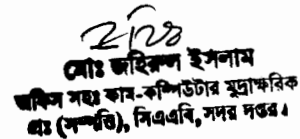 মোঃ জহিরুল ইসলাম
অফিস সহঃ কাম-কম্পিউটার মুদ্রাক্ষরিক
এঃ (সম্পত্তি), সিএএবি, সদর দপ্তর।